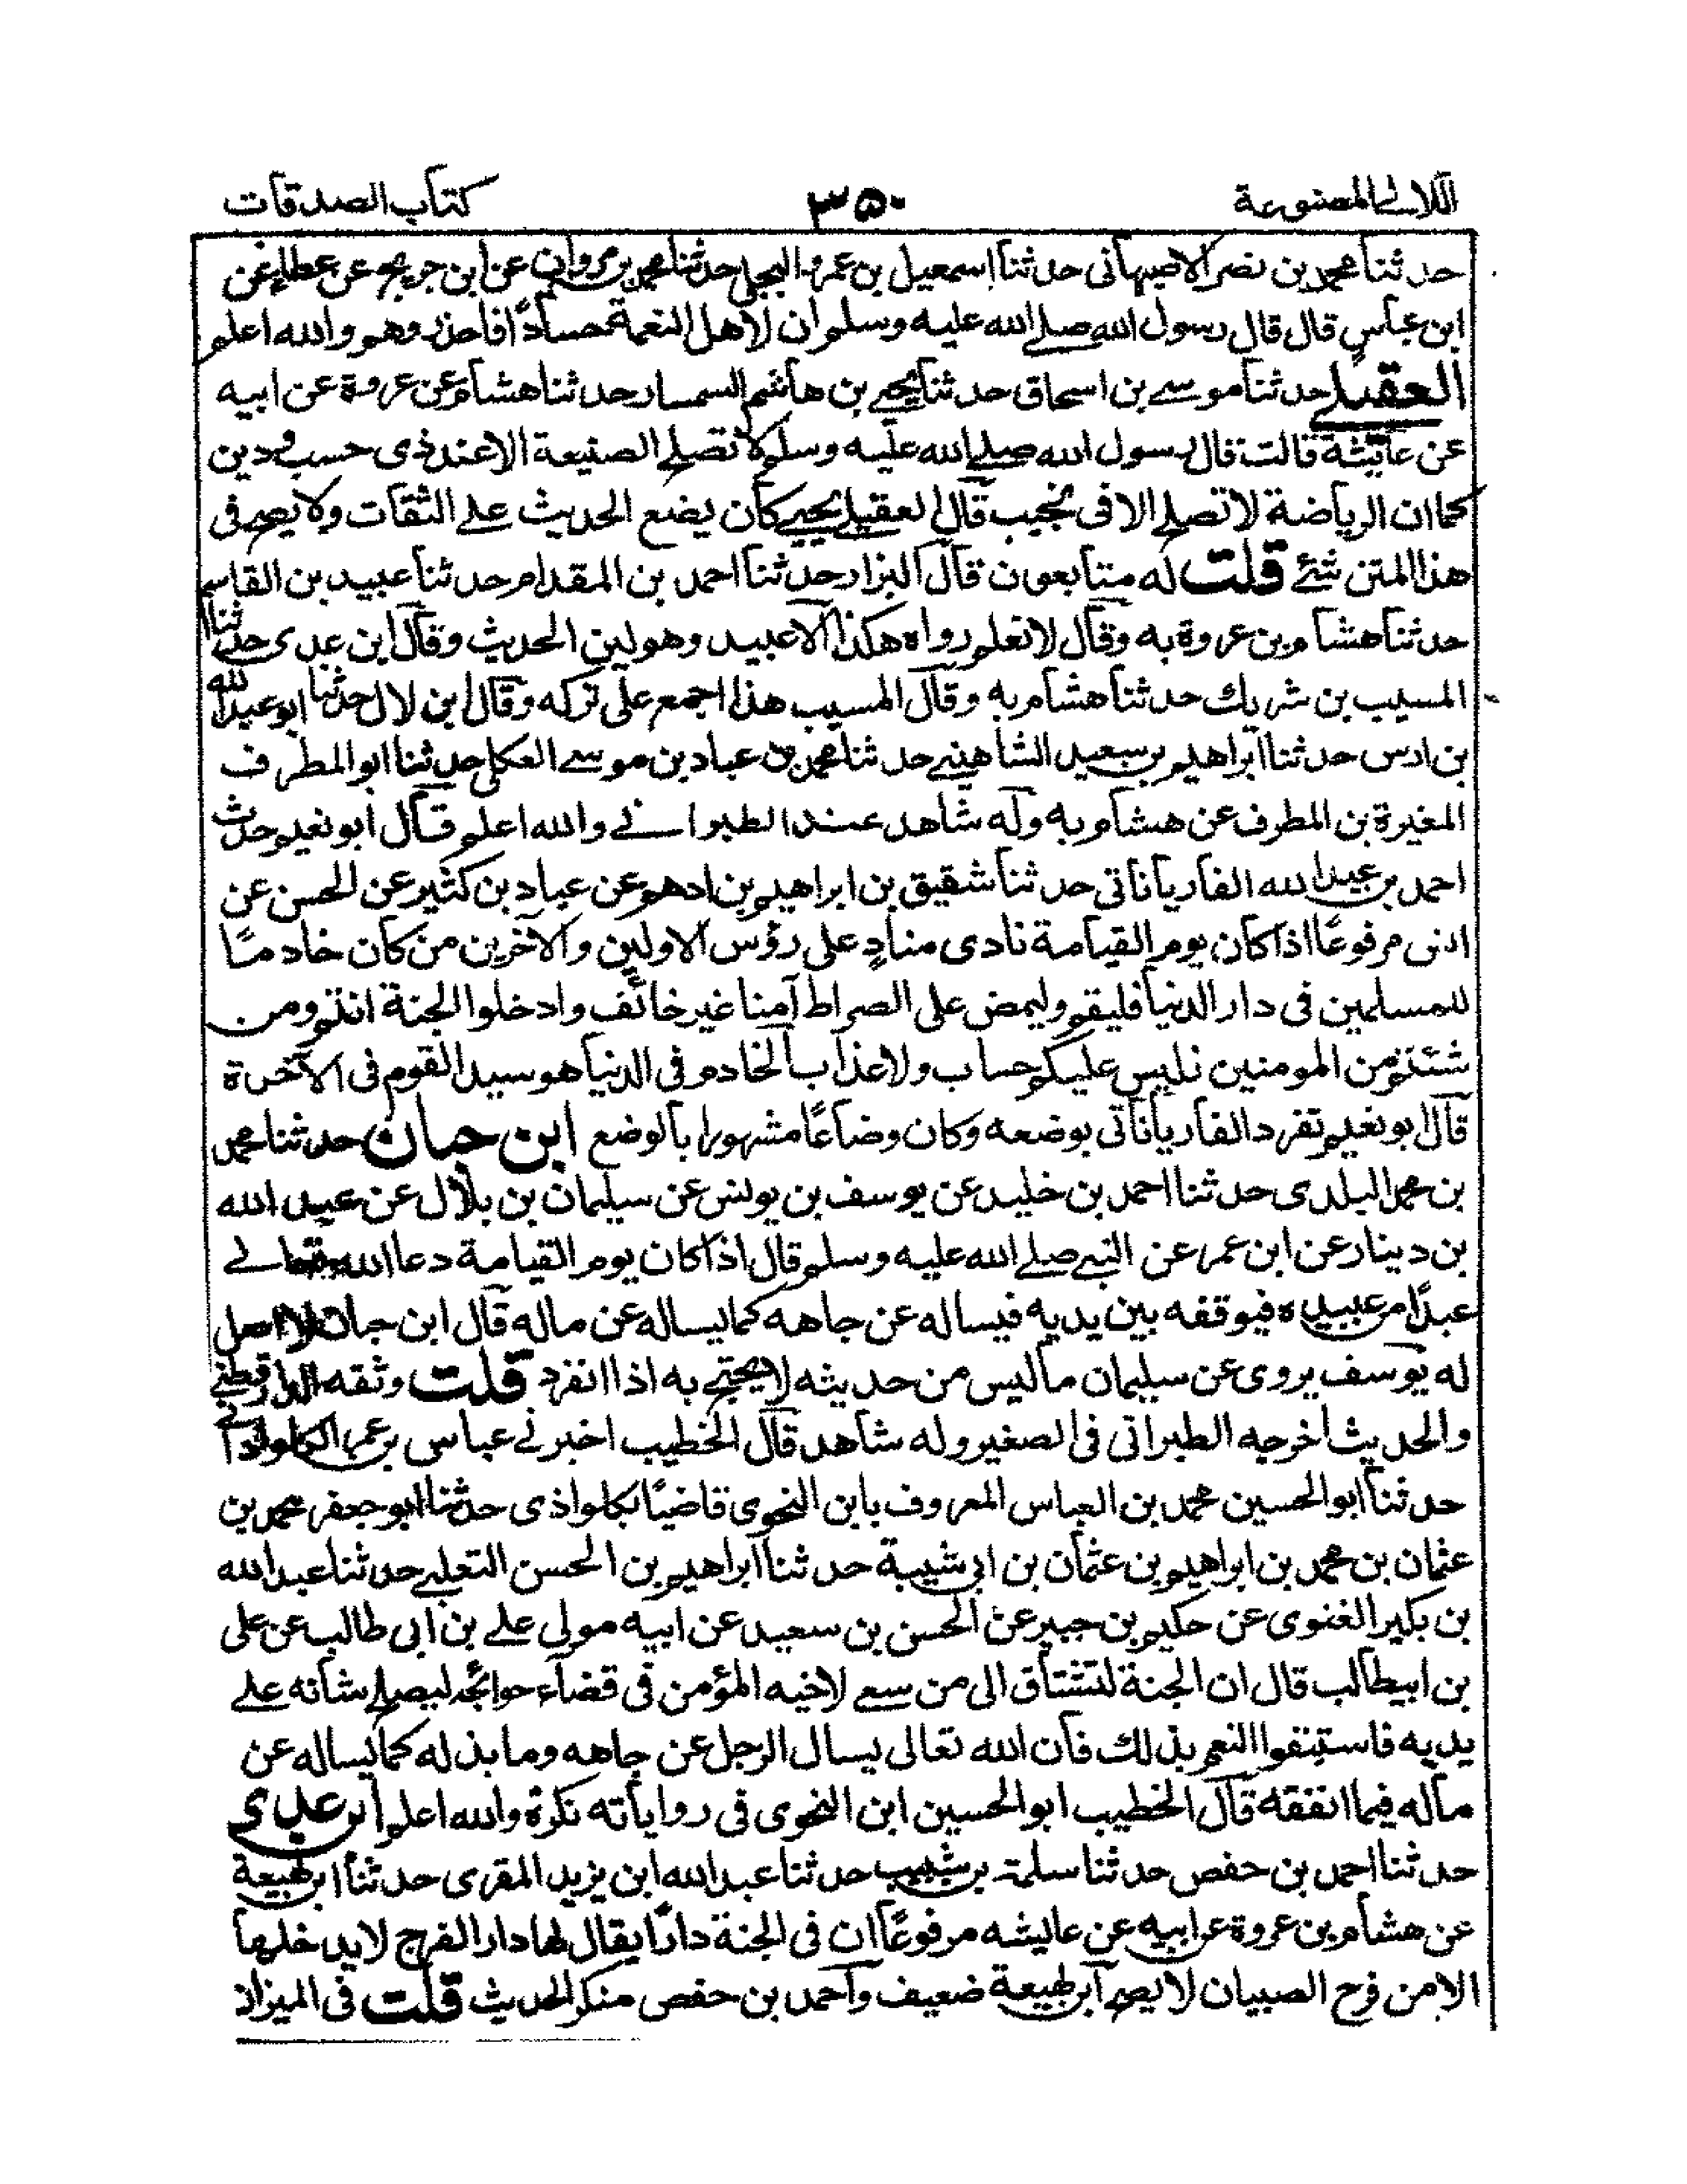 اللالے المصنوعة ۳۵۰ كتاب الصدقات
حدثنا محمد بن نصر الاصبهانى حدثنا اسمعيل بن عمرو البجلى حدثنا محمد بن مروان عن ابن جريج عن عطاء عن
ابن عباس قال قال رسول الله صلے الله عليه وسلم ان لاهل النعمة حسادًا فاحذروهم والله اعلم
العقيلے حدثنا موسے بن اسحاق حدثنا يحيے بن هاشم السمسار حدثنا هشام عن عروة عن ابيه
عن عائشة قالت قال رسول الله صلے الله عليه وسلم لا تصلے الصنيعة الا عند ذى حسب ودين
كما ان الرياضة لا تصلے الا فى نجيب قال العقيلے يحيے كان يضع الحديث علے الثقات ولا يصح فى
هذا المتن شئے قلت له متابعون قال البزار حدثنا احمد بن المقدام حدثنا عبيد بن القاسم
حدثنا هشام بن عروة به وقال لا نعلم رواه هكذا الا عبيد وهو لين الحديث وقال ابن عدى حدثنا
المسيب بن شريك حدثنا هشام به وقال المسيب هذا اجمع على تركه وقال ابن لال حدثنا ابو عبد الله
بن ادس حدثنا ابراهيم بن سعيد الشاهينے حدثنا محمد بن عباد بن موسے العكلى حدثنا ابو المطرف
المغيرة بن المطرف عن هشام به وله شاهد عند الطبرانے والله اعلم قال ابو نعيم حدث
احمد بن عبد الله الفاريانانى حدثنا شقيق بن ابراهيم بن ادهم عن عباد بن كثير عن الحسن عن
انس مرفوعًا اذا كان يوم القيامة نادى منادٍ على رؤس الاولين والآخرين من كان خادمًا
للمسلمين فى دار الدنيا فليقم وليمض على الصراط آمنا غير خائف وادخلوا الجنة انتم ومن
شئتم من المومنين فليس عليكم حساب ولا عذاب الخادم فى الدنيا هو سيد القوم فى الآخرة
قال ابو نعيم تفرد الفاريانانى بوضعه وكان وضاعًا مشهورا بالوضع ابن حبان حدثنا محمد
بن محمد البلدى حدثنا احمد بن خليد عن يوسف بن يونس عن سليمان بن بلال عن عبد الله
بن دينار عن ابن عمر عن النبے صلے الله عليه وسلم قال اذا كان يوم القيامة دعا الله تعالے
عبدًا من عبيده فيوقفه بين يديه فيساله عن جاهه كما يساله عن ماله قال ابن حبان لا اصل
له يوسف يروى عن سليمان ما ليس من حديثه لا يحتج به اذا انفرد قلت وثقه الدارقطنے
والحديث اخرجه الطبرانى فى الصغير وله شاهد قال الخطيب اخبرنے عباس بن عمر الكلواذانے
حدثنا ابو الحسين محمد بن العباس المعروف بابن النحوى قاضيًا بكلواذى حدثنا ابو جعفر محمد بن
عثمان بن محمد بن ابراهيم بن عثمان بن ابى شيبة حدثنا ابراهيم بن الحسن التعلبے حدثنا عبد الله
بن بكير الغنوى عن حكيم بن جبير عن الحسن بن سعيد عن ابيه مولى علے بن ابى طالب عن على
بن ابيطالب قال ان الجنة لتشتاق الى من سعے لاخيه المؤمن فى قضاء حوائجه ليصلے شانه علے
يديه فاستبقوا النعم بذلك فان الله تعالى يسال الرجل عن جاهه وما بذله كما يساله عن
ماله فيما انفقه قال الخطيب ابو الحسين ابن النحوى فى رواياته نكرة والله اعلم ابن عدى
حدثنا احمد بن حفص حدثنا سلمة بن شبيب حدثنا عبد الله ابن يزيد المقرى حدثنا ابن لهيعة
عن هشام بن عروة عن ابيه عن عايشه مرفوعًا ان فى الجنة دارًا يقال لها دار الفرج لا يدخلها
الا من فرح الصبيان لا يصح ابن لهيعة ضعيف واحمد بن حفص منكر الحديث قلت فى الميزان